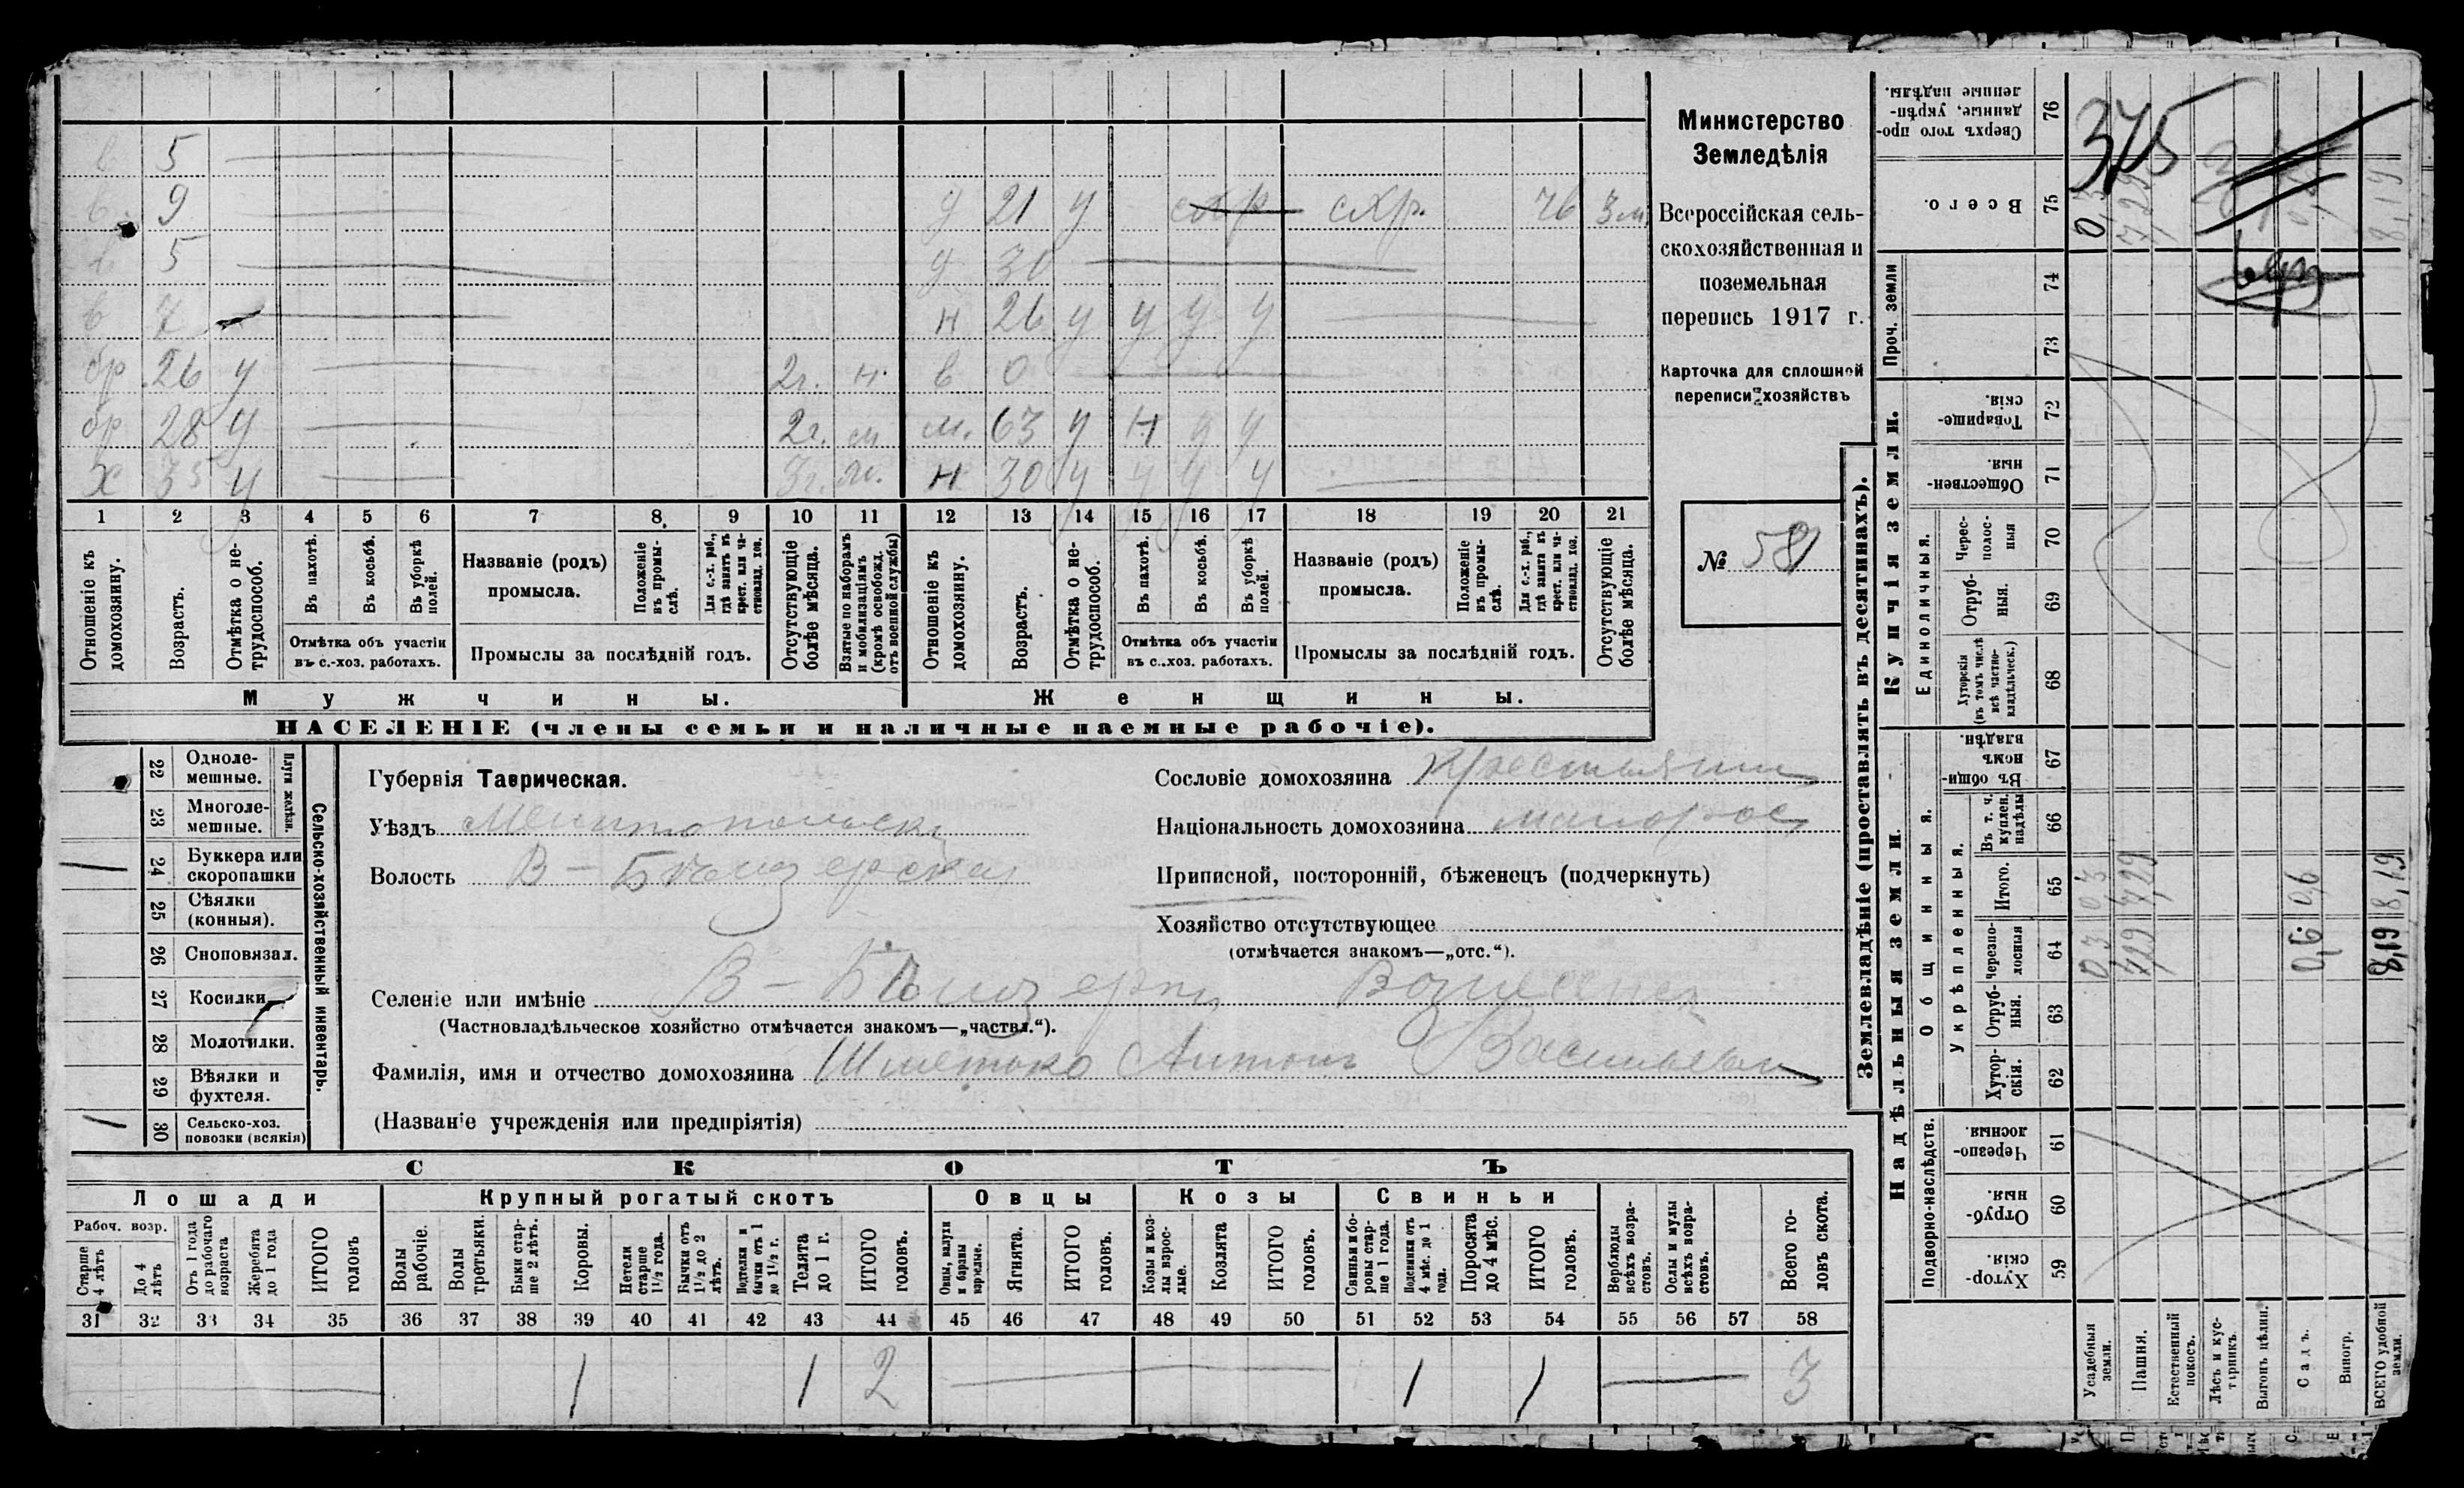 в 5
в 9 д 21 у схр схр. чв 3 м
в 5 д 30
в 7 н 26 у у у у
бр 26 у 2г. н. в 0
бр 28 у 2г. м м. 63 у н у у
х 35 у 3г. м. н 30 у у у у
1 2 3 4 5 6 7 8 9 10 11 12 13 14 15 16 17 18 19 20 21
Отношеніе къ домохозяину.
Возрастъ.
Отмѣтка о не-трудоспособ.
Въ пахотѣ.
Въ косьбѣ.
Въ уборкѣ полей.
Отмѣтка объ участіи
въ с.-хоз. работахъ.
Названіе (родъ)
промысла.
Положеніе въ промы-слѣ.
Для с.-х. раб., гдѣ занятъ въ крест. или ча-стновлад. хоз.
Промыслы за послѣдній годъ.
Отсутствующіе болѣе мѣсяца.
Взятые по наборамъ и мобилизаціямъ (кромѣ освобожд. отъ военной службы)
Отношеніе къ домохозяину.
Возрастъ.
Отмѣтка о не-трудоспособ.
Въ пахотѣ.
Въ косьбѣ.
Въ уборкѣ полей.
Отмѣтка объ участіи
въ с.-хоз. работахъ.
Названіе (родъ)
промысла.
Положеніе въ промы-слѣ.
Для с.-х. раб., гдѣ занята въ крест. или ча-стновлад. хоз.
Промыслы за послѣдній годъ.
Отсутствующіе болѣе мѣсяца.
Мужчины. Женщины.
НАСЕЛЕНІЕ (члены семьи и наличные наемные рабочіе).
Министерство
Земледѣлія
Всероссійская сель-
скохозяйственная и
поземельная
перепись 1917 г.
Карточка для сплошной
переписи хозяйствъ
№ 581
22 Одноле-мешные.
23 Многоле-мешные.
Плуги желѣзн.
24 Буккера или скоропашки
25 Сѣялки (конныя).
26 Сноповязал.
27 Косилки
28 Молотилки.
29 Вѣялки и фухтеля.
1 30 Сельско-хоз. повозки (всякія)
Сельско-хозяйственный инвентарь.
Губернія Таврическая.
Уѣздъ Мелитопольскі
Волость В-Бѣлозерская
Сословіе домохозяина крестьянин
Національность домохозяина малорос
Приписной, посторонній, бѣженецъ (подчеркнуть)
Хозяйство отсутствующее
(отмѣчается знакомъ—„отс.“).
Селеніе или имѣніе В-Бѣлозерка
(Частновладѣльческое хозяйство отмѣчается знакомъ—„частвл.“).
Фамилія, имя и отчество домохозяина Антонъ Васильевич
(Названіе учрежденія или предпріятія)
СКОТЪ
Лошади Крупный рогатый скотъ Овцы Козы Свиньи
Рабоч. возр.
Старше 4 лѣтъ
До 4 лѣтъ
Отъ 1 года до рабочаго возраста
Жеребята до 1 года
ИТОГО головъ
Волы рабочіе.
Волы третьяки.
Быки стар-ше 2 лѣтъ.
Коровы.
Нетели старше 1½ года.
Бычки отъ 1½ до 2 лѣтъ.
Подтелки и бычки отъ 1 до 1½ г.
Телята до 1 г.
ИТОГО головъ.
Овцы, валухи и бараны взрослые.
Ягнята.
ИТОГО головъ.
Козы и коз-лы взрос-лые.
Козлята
ИТОГО головъ.
Свиньи и бо-ровы стар-ше 1 года.
Подсвинки отъ 4 мѣс. до 1 года.
Поросята до 4 мѣс.
ИТОГО головъ.
Верблюды всѣхъ возра-стовъ.
Ослы и мулы всѣхъ возра-стовъ.
Всего го-ловъ скота.
31 32 33 34 35 36 37 38 39 40 41 42 43 44 45 46 47 48 49 50 51 52 53 54 55 56 57 58
1 1 2 1 1 3
Землевладѣніе (проставлять въ десятинахъ).
Надѣльныя земли.
Купчія земли.
Проч. земли
Подворно-наслѣдств.
Общинныя.
Укрѣпленныя.
Единоличныя.
59 Хутор-скія.
60 Отруб-ныя.
61 Черезпо-лосныя.
62 Хутор-скія.
63 Отруб-ныя.
64 Черезпо-лосныя
65 Итого.
66 Въ т. ч. куплен. надѣлы
67 Въ общин-номъ владѣн.
68 Хуторскія (въ томъ числѣ всѣ частно-владѣльческ.)
69 Отруб-ныя.
70 Черес-полос-ныя
71 Обществен-ныя.
72 Товарище-скія.
73
74
75 Всего.
76 Сверхъ того про-данные, укрѣп-ленные надѣлы.
Усадебныя земли. 0,3 0,3 0,3
Пашня. 7,29 7,29 7,29
Естественный покосъ.
Лѣсъ и кус-тарникъ.
Выгонъ цѣлин.
Садъ. 0,6 0,6
Виногр.
ВСЕГО удобной земли. 8,19 8,19 8,19
375